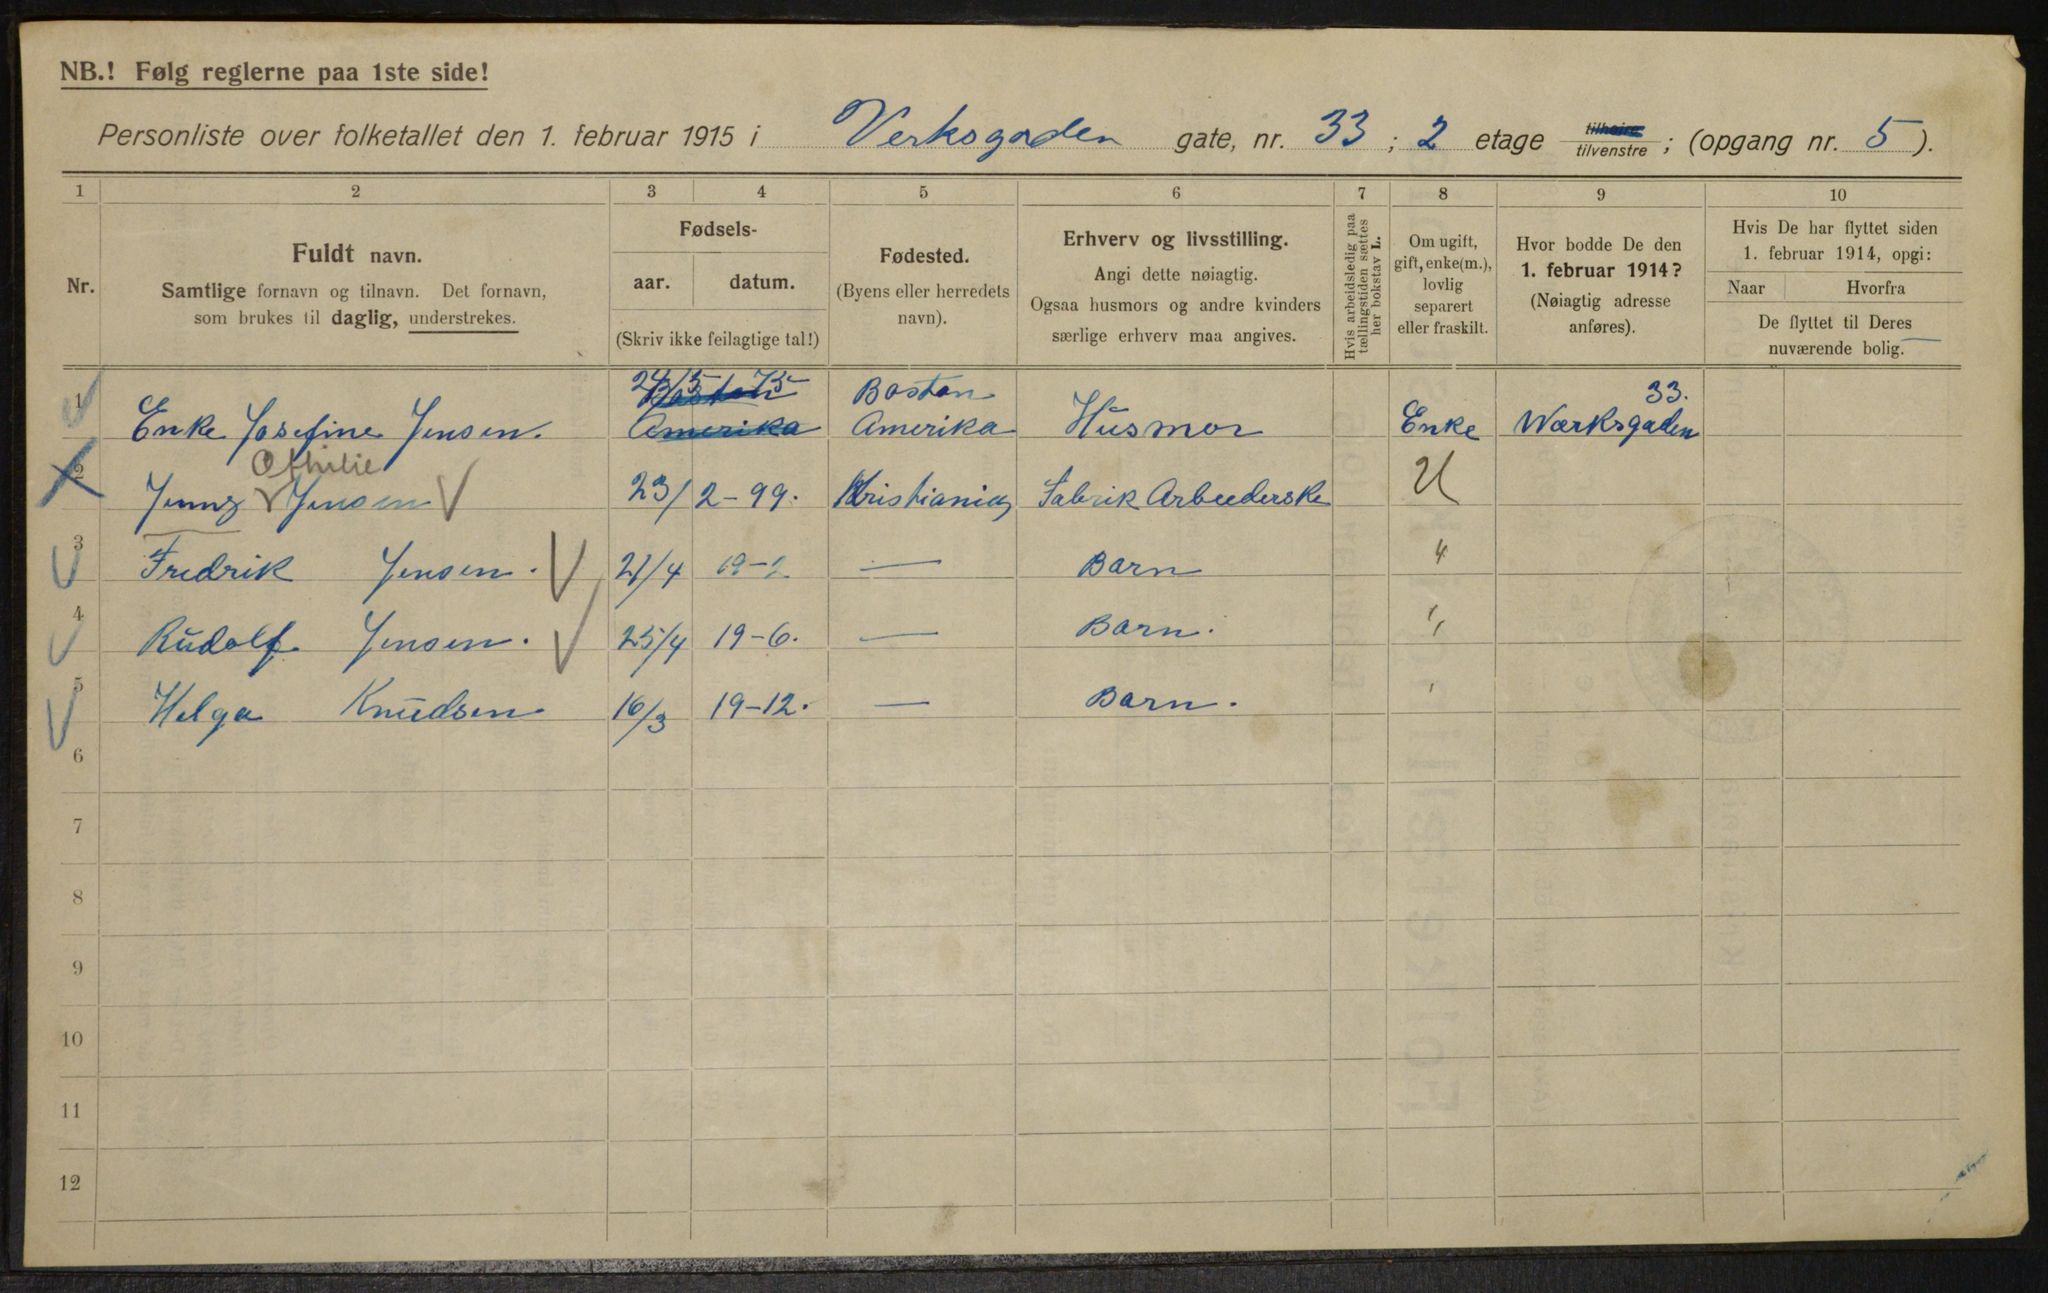 NB.! Følg reglerne paa 1ste side!
Personliste over folketallet den 1. februar 1915 i Verksgaden gate, nr. 33 ; 2 etage tilhøire / tilvenstre ; (opgang nr. 5 ).
1 2 3 4 5 6 7 8 9 10
Nr.
Fuldt navn.
Samtlige fornavn og tilnavn. Det fornavn,
som brukes til daglig, understrekes.
Fødsels-
aar. datum.
(Skriv ikke feilagtige tal!)
Fødested.
(Byens eller herredets
navn).
Erhverv og livsstilling.
Angi dette nøiagtig.
Ogsaa husmors og andre kvinders
særlige erhverv maa angives.
Hvis arbeidsledig paa
tællingstiden sættes
her bokstav L.
Om ugift,
gift, enke(m.),
lovlig
separert
eller fraskilt.
Hvor bodde De den
1. februar 1914?
(Nøiagtig adresse
anføres).
Hvis De har flyttet siden
1. februar 1914, opgi:
Naar Hvorfra
De flyttet til Deres
nuværende bolig.
24/5 75 Boston 33.
1 Enke Josefine Jensen. Boston Amerika Amerika Husmor Enke Værksgaden
Othilie
2 Jenny Jensen 23/2-99. Kristiania Fabrik Arbeederske U
3 Fredrik Jensen. 21/4 19-2 — Barn "
4 Rudolf Jensen. 25/4 19-6. — Barn. "
5 Helga Knudsen 16/3 19-12. — Barn. "
6
7
8
9
10
11
12